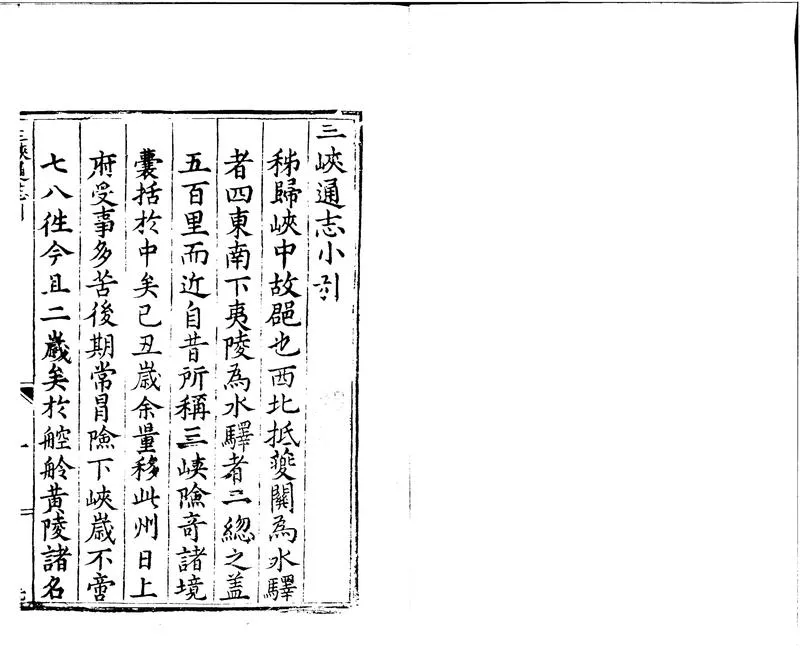 三峽通志小引
秭歸峽中故郡也西北抵夔關為水驛
者四東南下夷陵為水驛者二總之蓋
五百里而近自昔所稱三峽險竒諸境
囊括於中矣已丑歲余量移此州日上
府受事多苦後期常冒險下峽歲不啻
七八徃今且二歲矣於舲黃陵諸名
三峽通志引